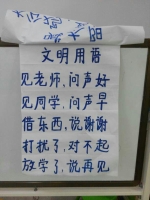 文明用语
见老师,问声好
见同学,问声早
借东西,说谢谢
打扰了,对不起
放学了,说再见